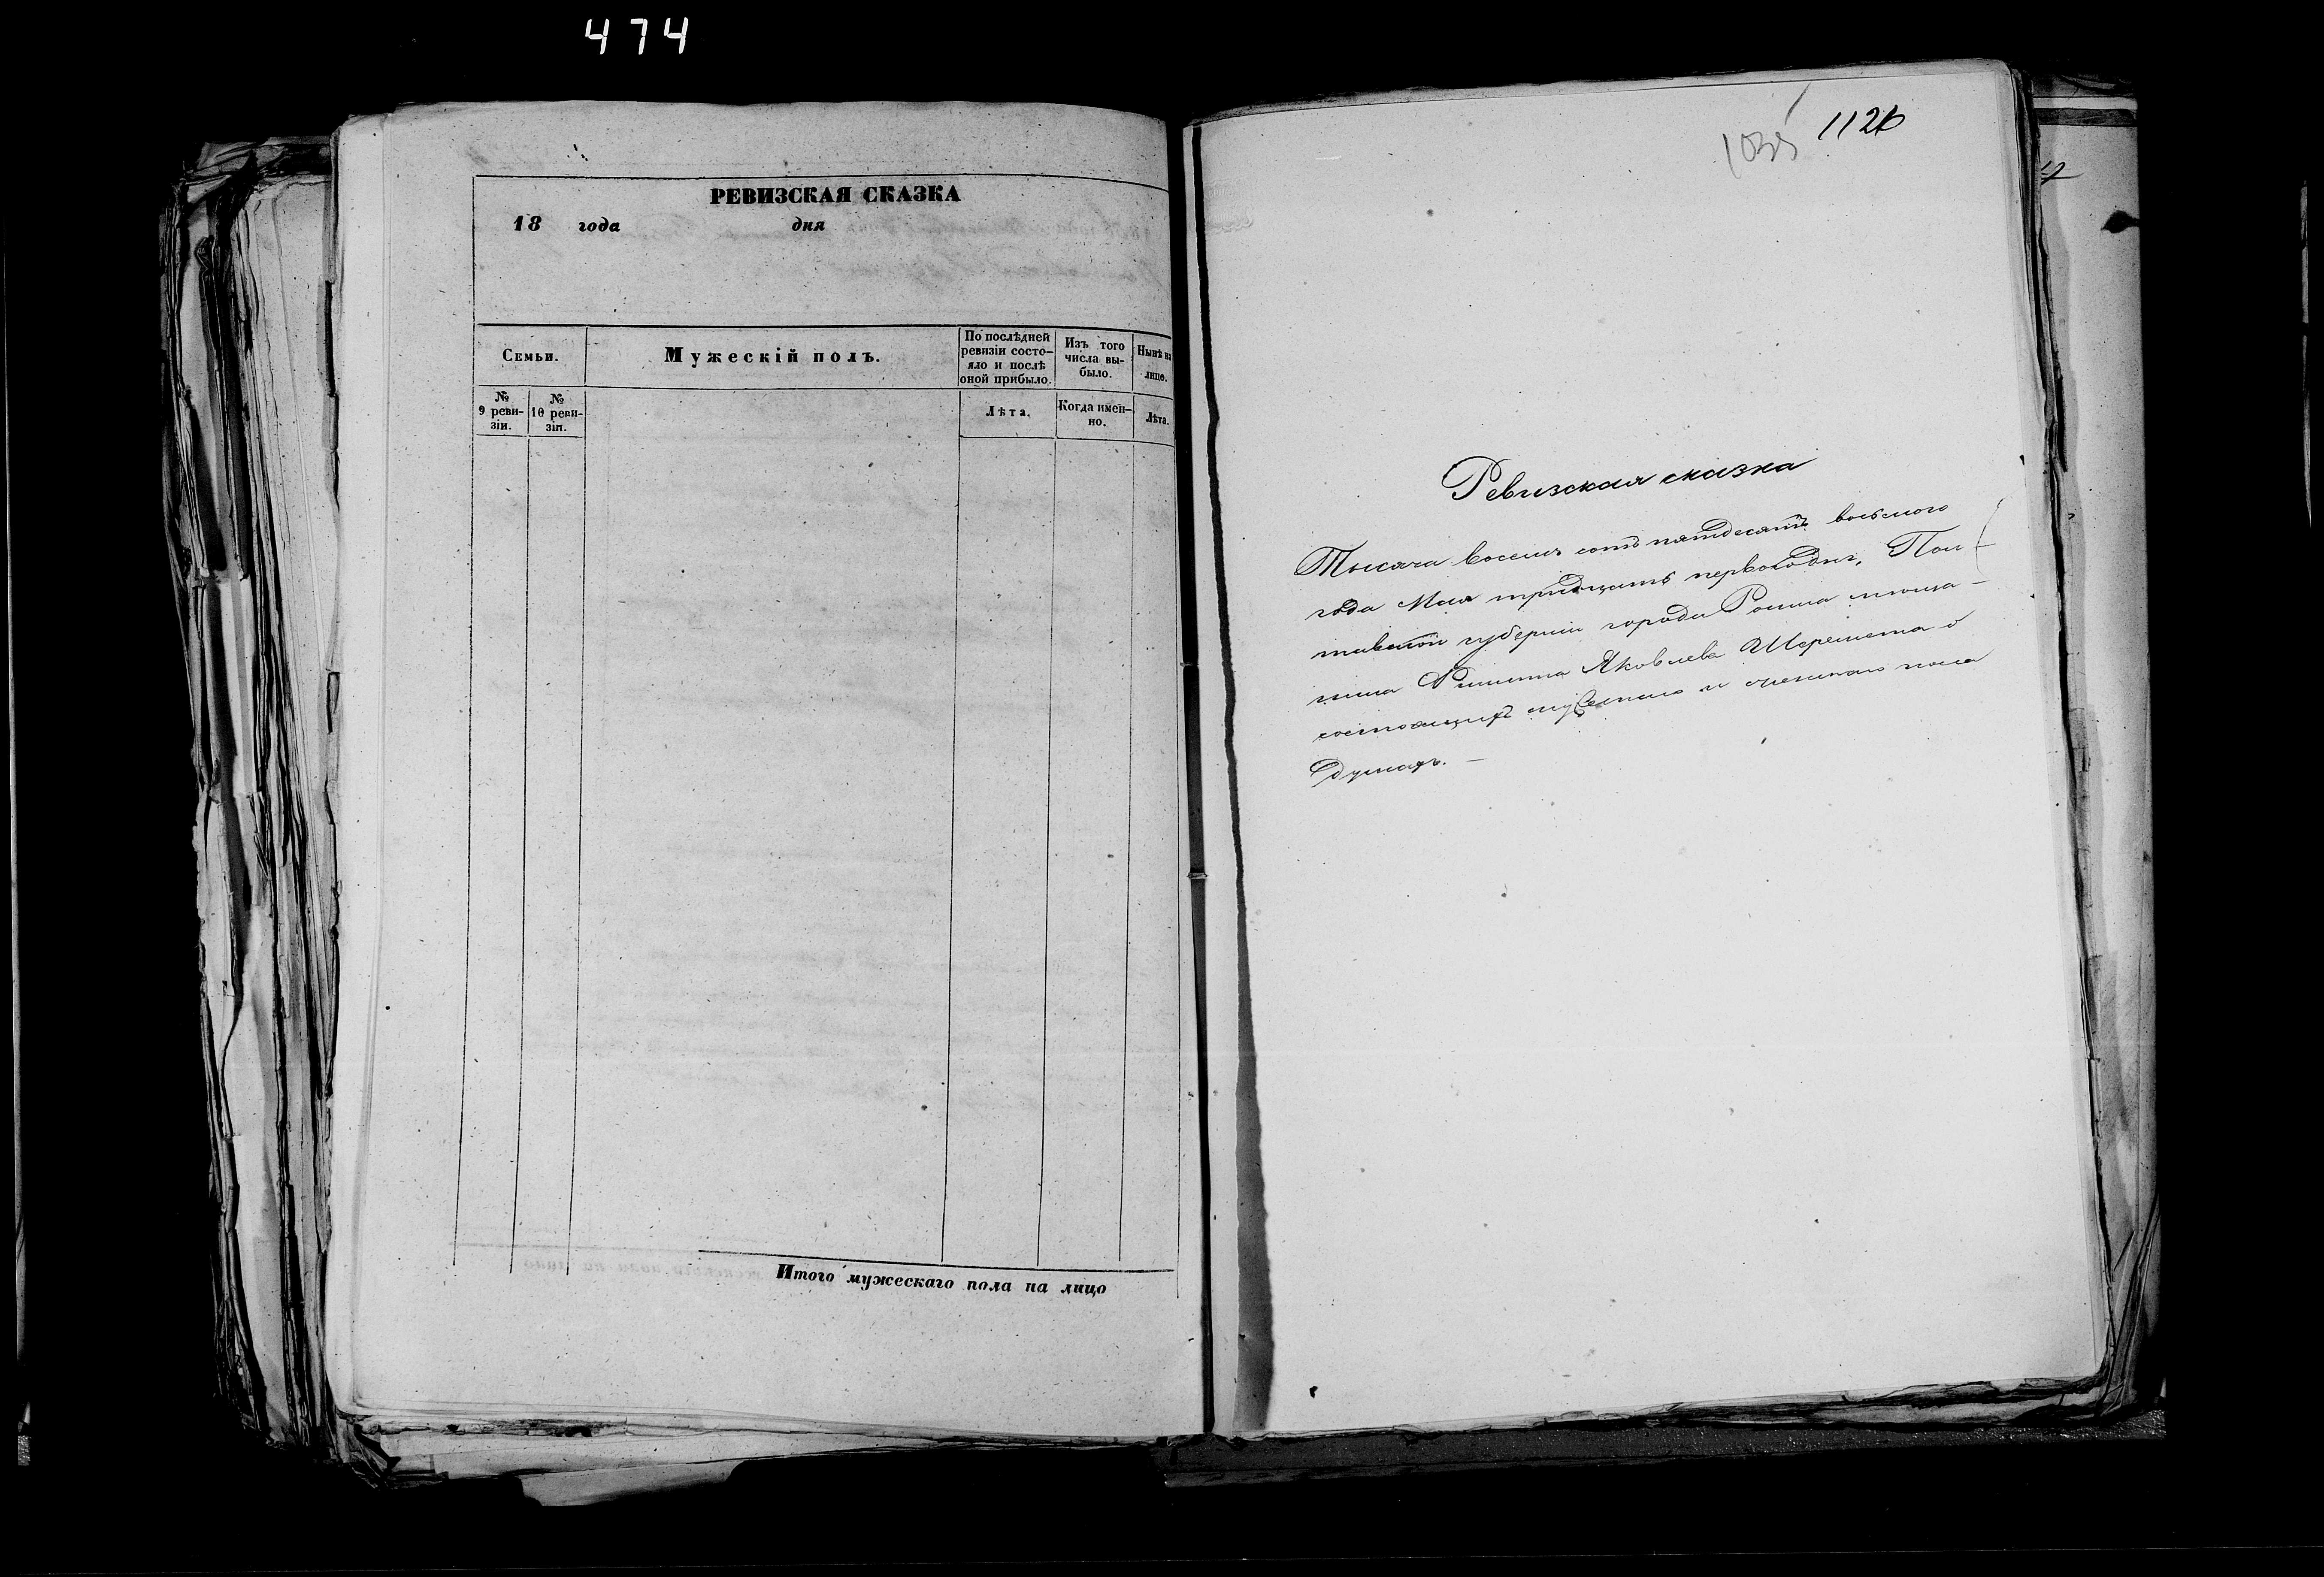 474
РЕВИЗСКАЯ СКАЗКА
18 года дня
Семьи.
Мужескій полъ.
По послѣдней ревизіи состо-
яло и послѣ
оной прибыло.
Изъ того
числа вы-
было.
Нынѣ на
лицо.
№
9 реви-
зіи.
№
10 реви-
зіи.
Лѣта.
Когда имен-
но.
Лѣта.
Итого мужескаго пола на лицо
1126
Ревизская сказка
Тысяча восемь сотъ пятдесятъ восьмого
года Мая тридцать первого дня, Пол
тавской губерніи города Ромна мѣща-
нина Яковлева Шеремета о
состоящихъ мужеска и женскаго пола
душахъ. —